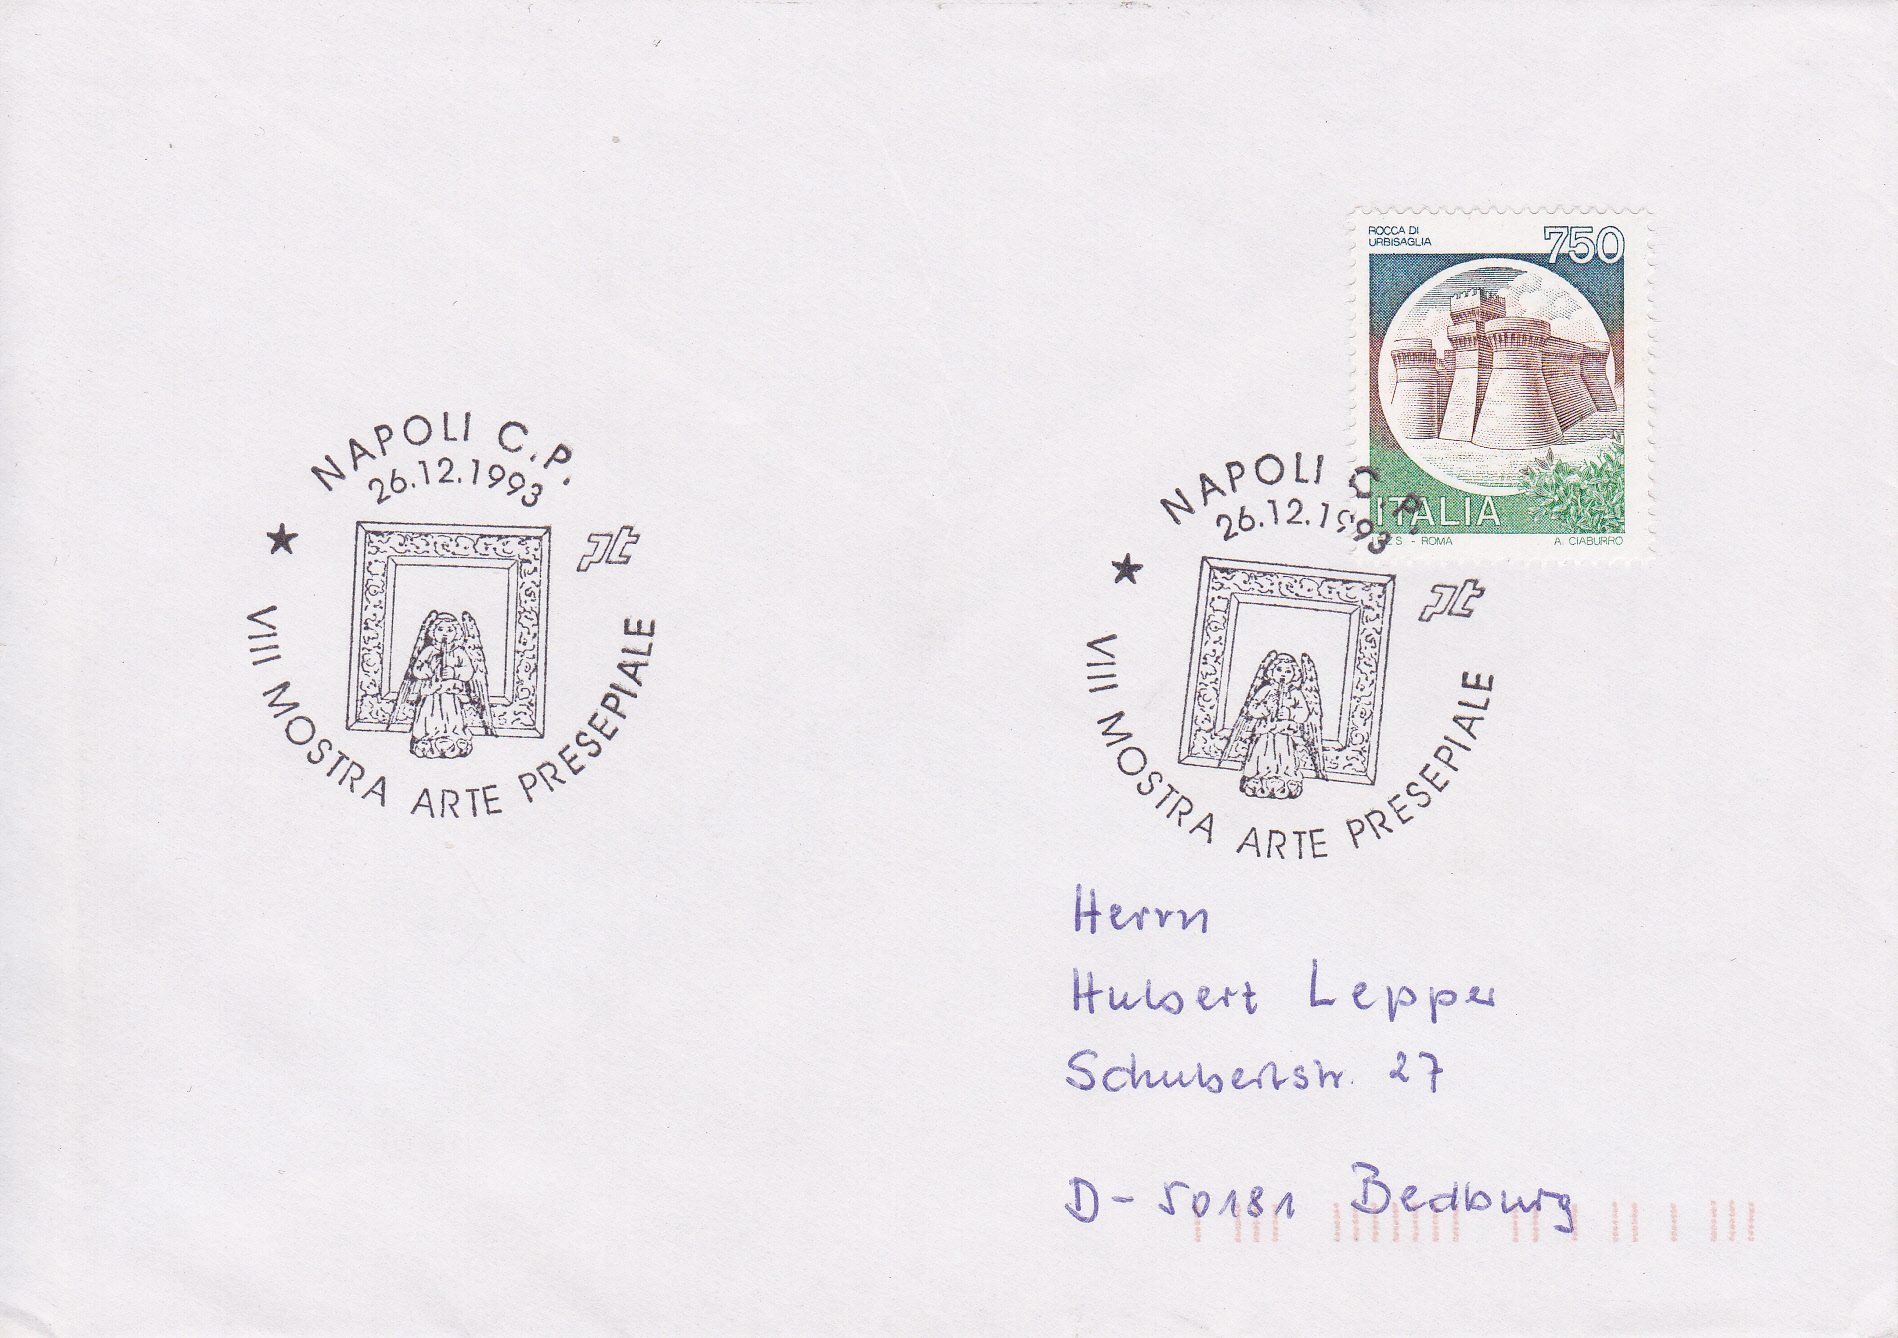 NAPOLI C.P.
26.12.1993
pt
VIII MOSTRA ARTE PRESEPIALE
ROCCA DI
URBISAGLIA
750
ITALIA
I.P.Z.S - ROMA A. CIABURRO
NAPOLI C.P.
26.12.1993
pt
VIII MOSTRA ARTE PRESEPIALE
Herrn
Hubert Lepper
Schubertstr. 27
D-50181 Bedburg